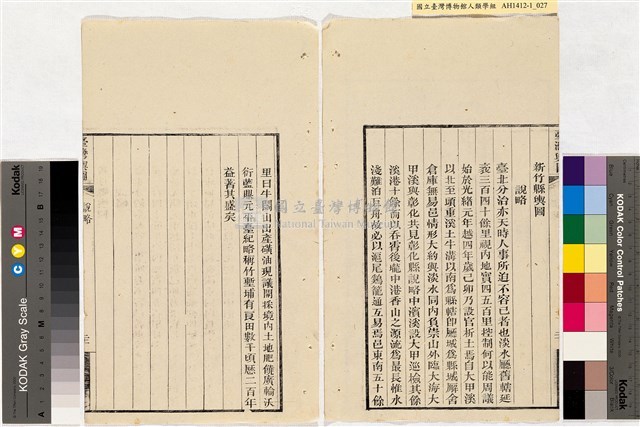 國立臺灣博物館人類學組 AH1412-1_027
新竹縣輿圖
說略
臺北分治亦天時人事所迫不容已者也淡水廳舊轄延
袤三百四十餘里視內地實四五百里控制何以能周議
始於光緒元年越四年歲己卯乃設官析土焉自大甲溪
以北至頭重溪土牛溝以南為縣轄即廳城為縣城廨舍
倉庫無易邑情形大約與淡水同內負崇山外臨大海大
甲溪與彰化共見彰化縣說略中濱溪設大甲巡檢其餘
溪港十餘而以吞霄後壠中港香山之源流為最長惟水
淺難泊
舟故必以滬尾鷄籠通互易焉邑東南五十餘
里曰牛
山出產磺油現議開採境內土地肥饒廣輪沃
衍藍鼎元平臺紀略稱竹塹埔有良田數千頃歷二百年
益著其盛矣
臺灣輿圖
說略
國立臺灣博物館
National Taiwan Museum
Kodak
KODAK Color Control Patches
Kodak
KODAK Gray Scale
C Y M